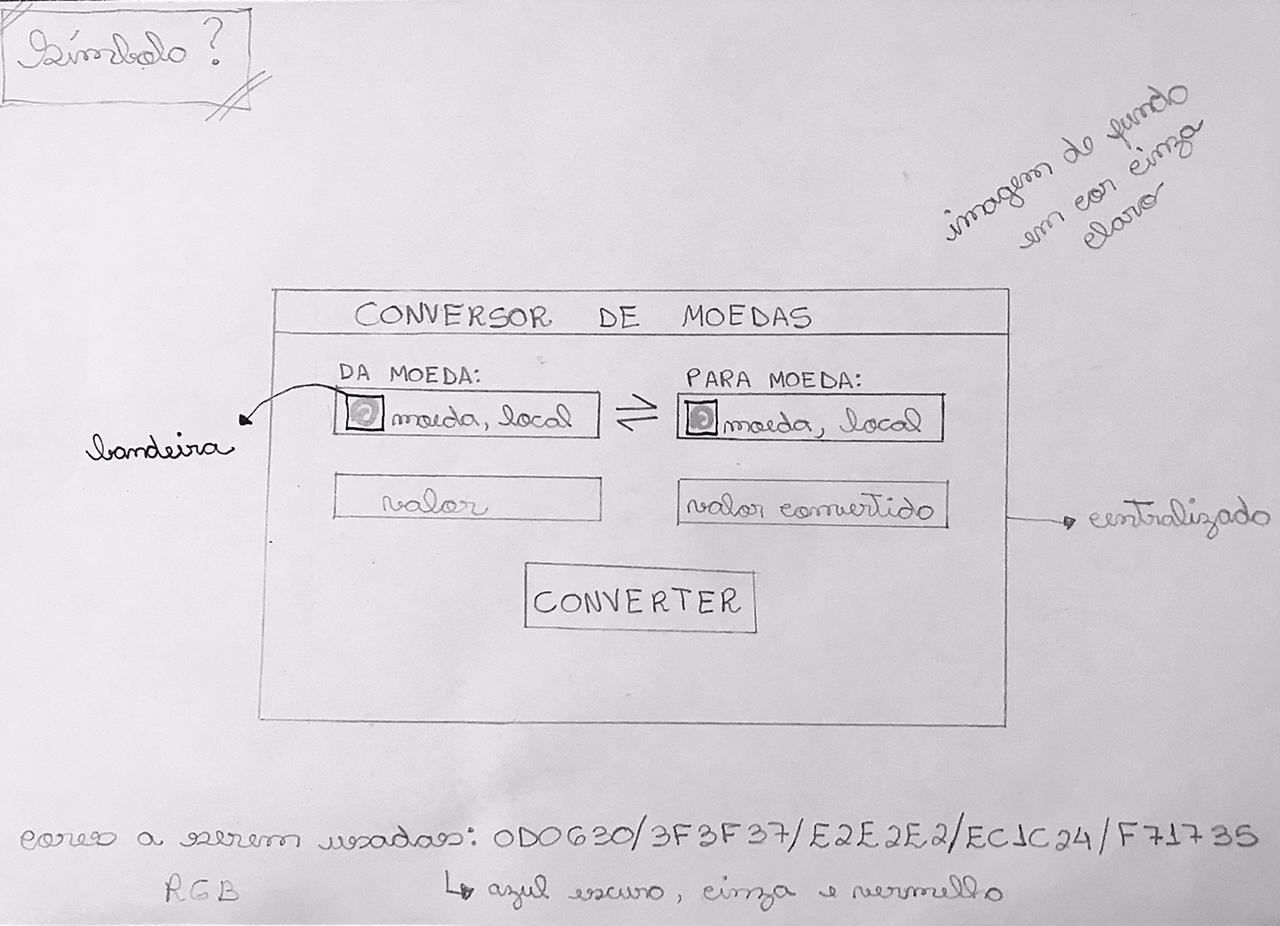 Símbolo?
imagem de fundo
em cor cinza
claro
CONVERSOR DE MOEDAS
DA MOEDA:
PARA MOEDA:
moeda, local
moeda, local
bandeira
valor
valor convertido
centralizado
CONVERTER
cores a serem usadas: 0D0630/3F3F37/E2E2E2/EC1C24/F71735
RGB
↳ azul escuro, cinza e vermelho